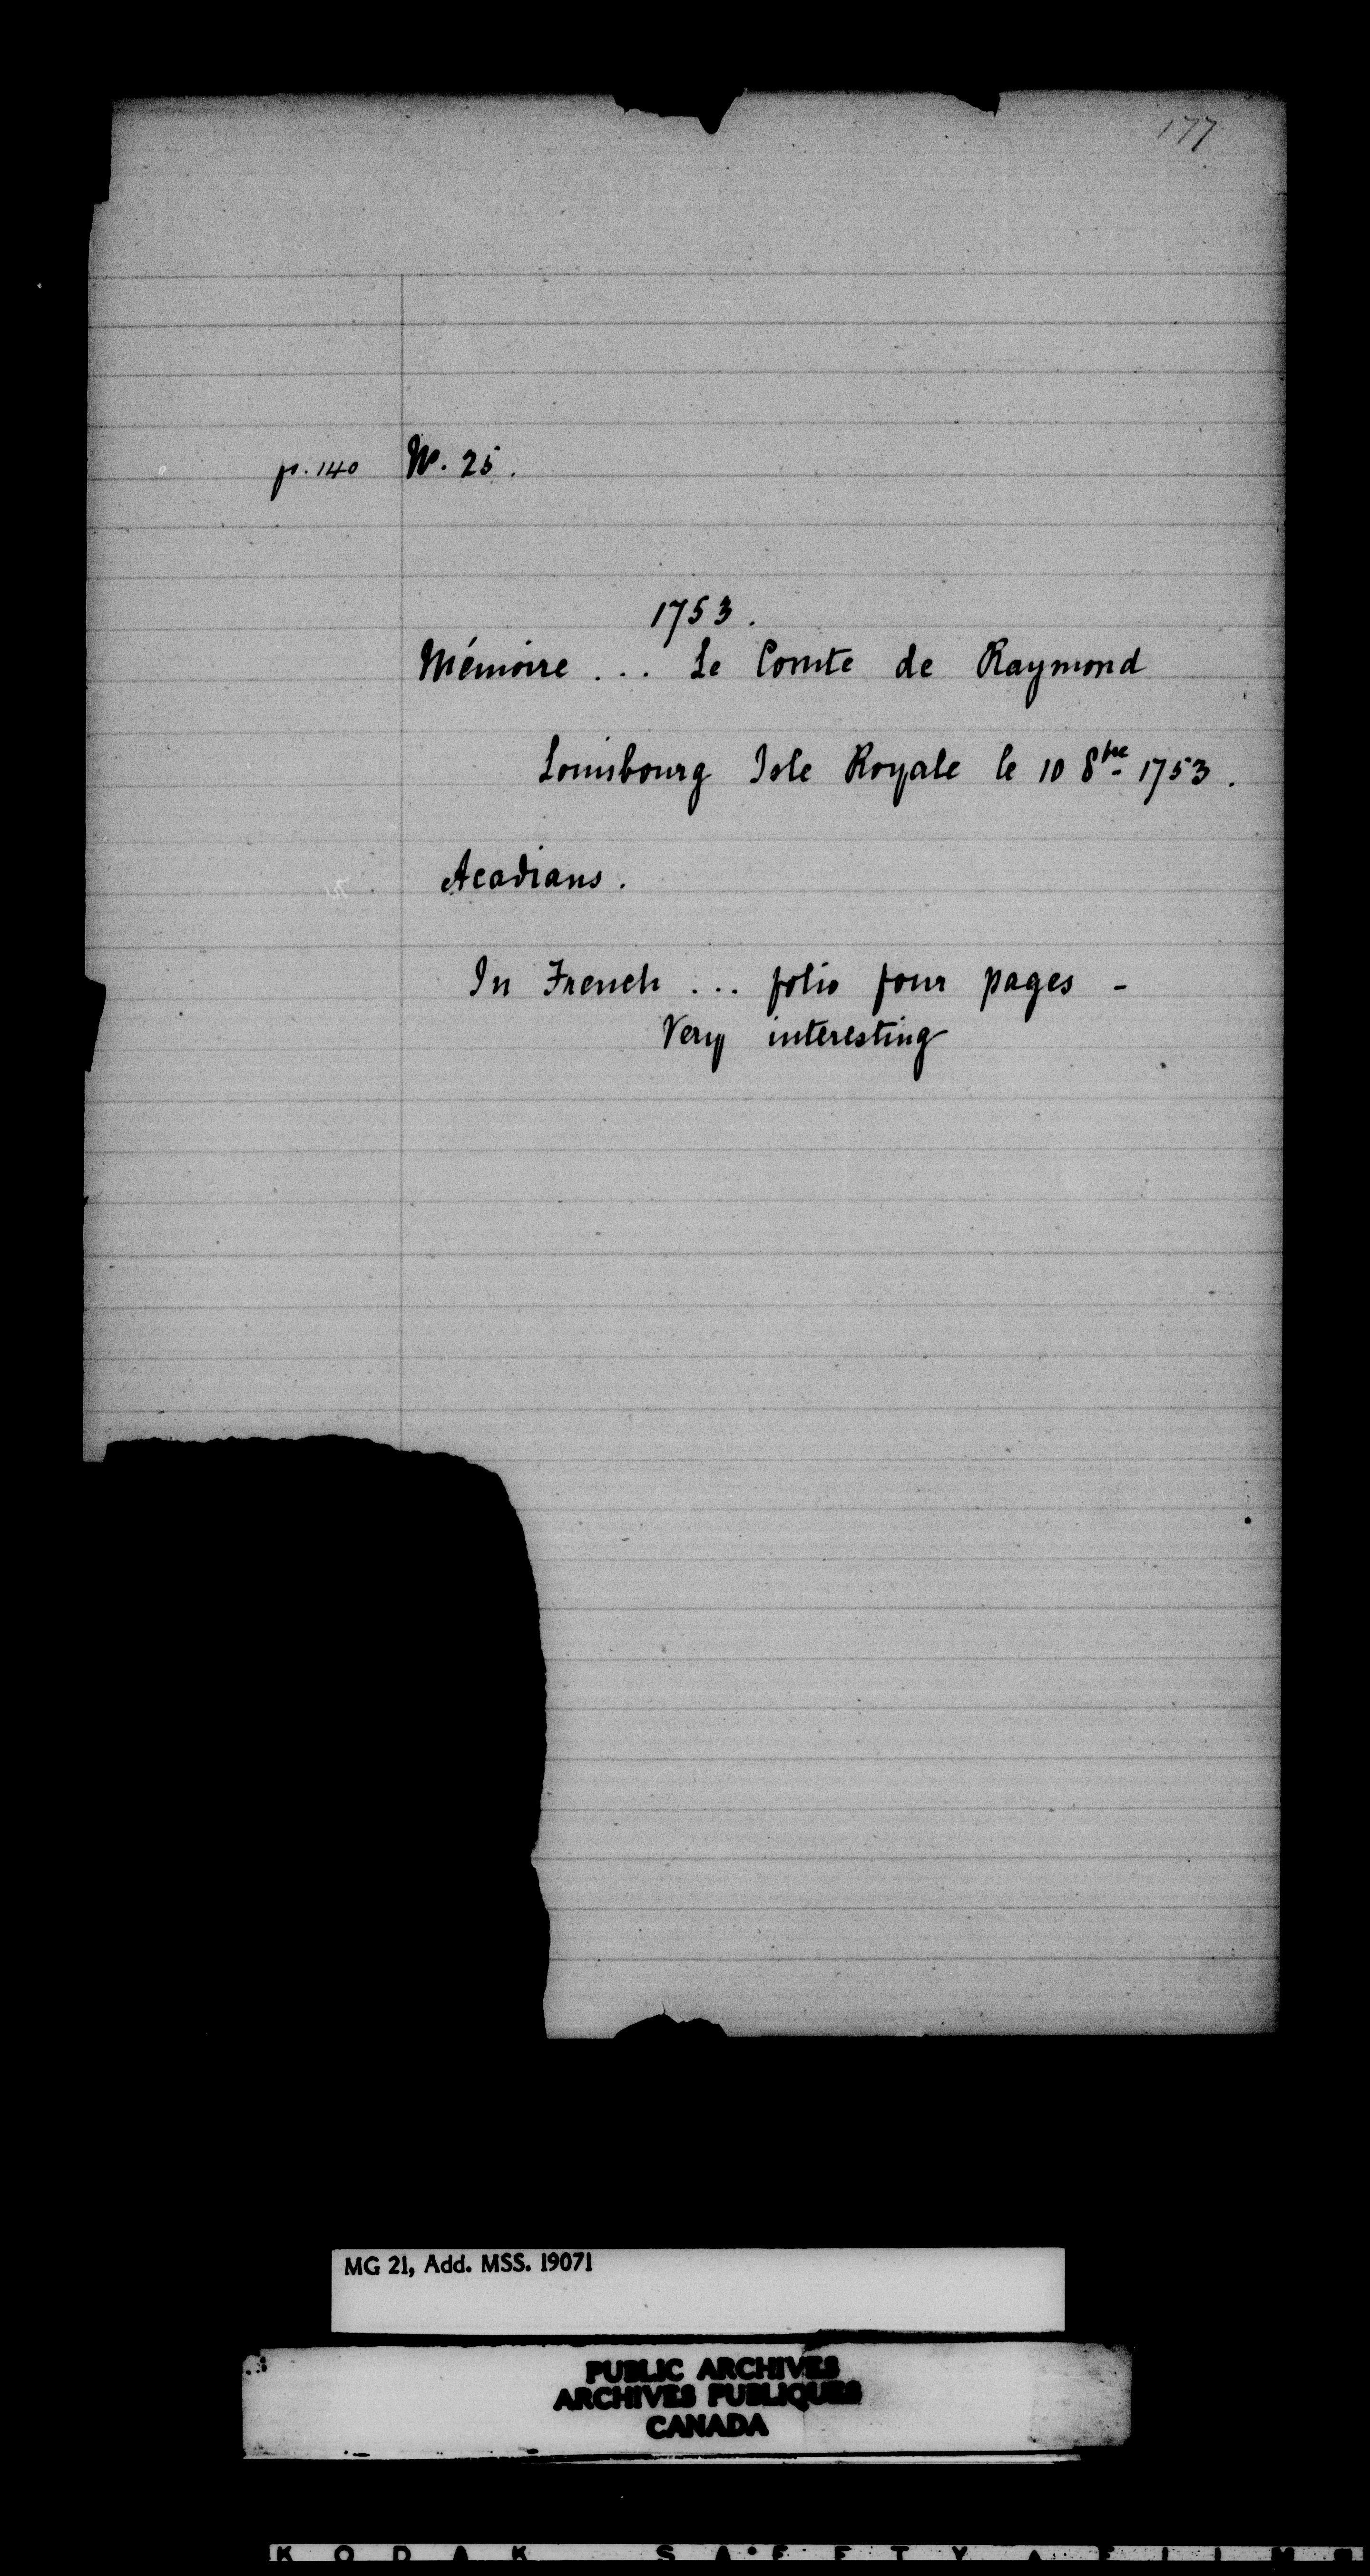 177
p. 140 No. 25.
1753.
Mémoire ... Le Comte de Raymond
Louisbourg Isle Royale le 10 8bre 1753.
Acadians.
In French ... folio four pages -
Very interesting
MG 21, Add. MSS. 19071
PUBLIC ARCHIVES
ARCHIVES PUBLIQUES
CANADA
KODAK SAFETY FILM